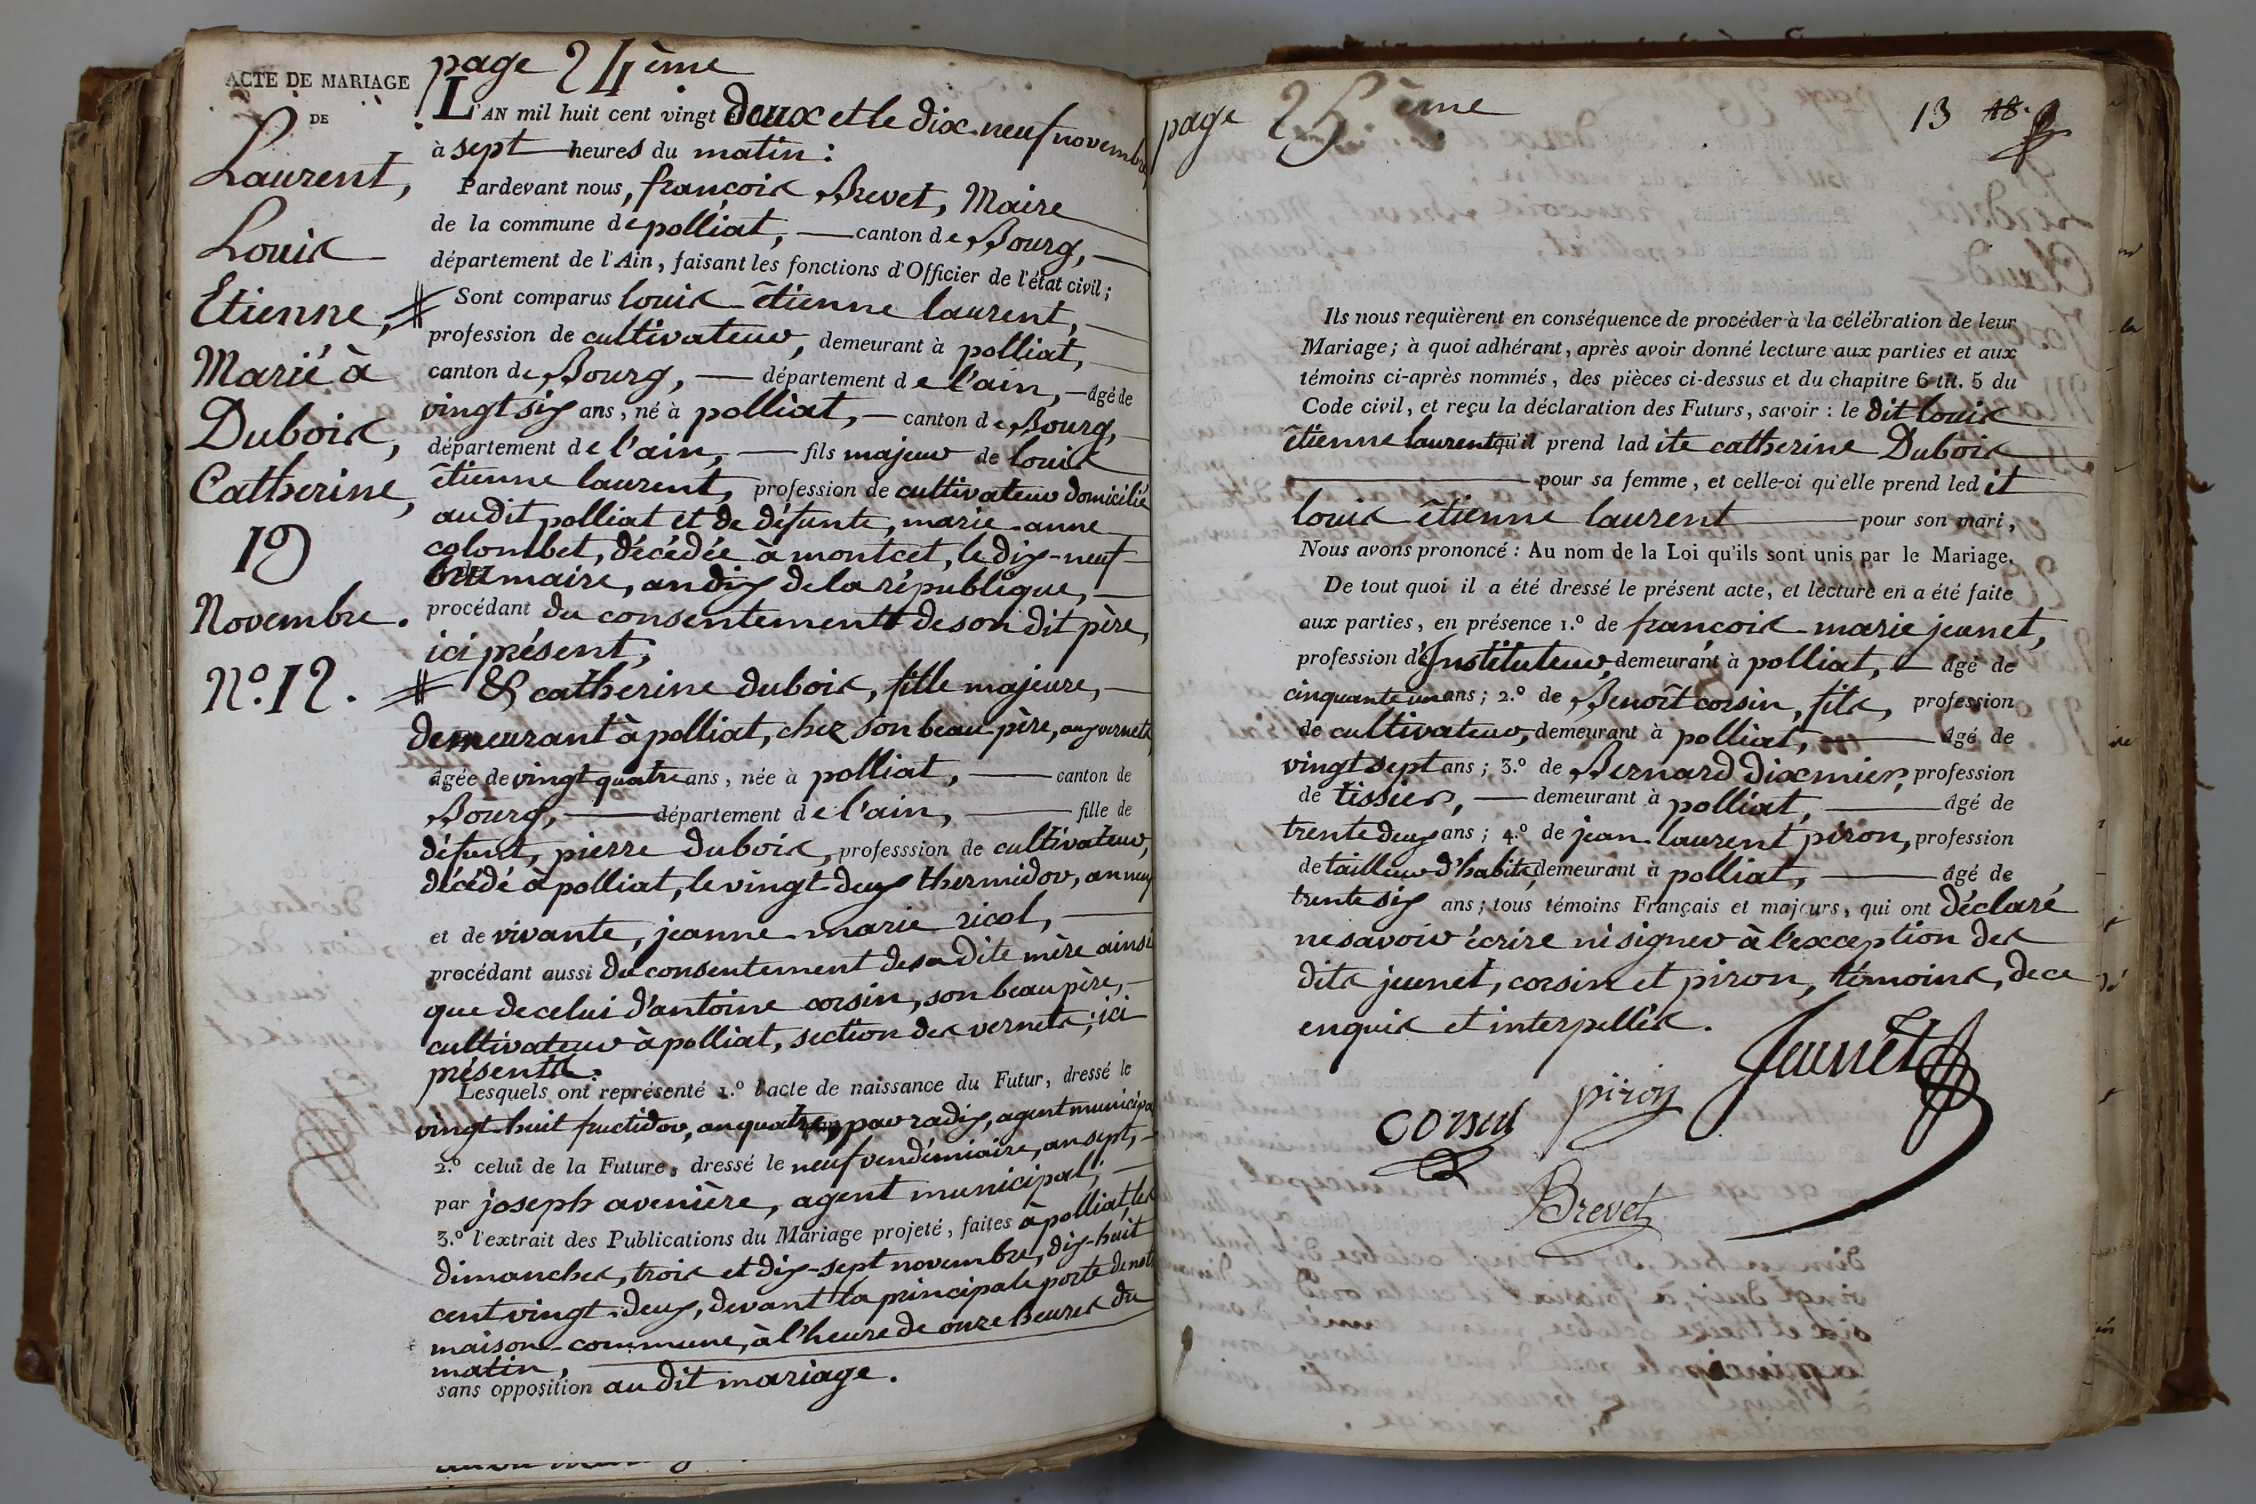 page 24ème
ACTE DE MARIAGE
DE
Laurent,
Louis
Etienne,
Marié à
Dubois,
Catherine,
19
Novembre.
N.º 12.
L'AN mil huit cent vingt deux et le dix-neuf novembre,
à sept heures du matin:
Pardevant nous, françois Brevet, Maire
de la commune de polliat, canton de Bourg,
département de l'Ain, faisant les fonctions d'Officier de l'état civil;
Sont comparus louis étienne laurent,
profession de cultivateur, demeurant à polliat,
canton de Bourg, département de l'ain, âgé de
vingt six ans, né à polliat, canton de Bourg,
département de l'ain, fils majeur de louis
étienne laurent, profession de cultivateur domicilié
audit polliat et de défunte, marie-anne
colombet, décédée à montcet, le dix-neuf
brumaire, an dix de la république,
procédant du consentement de son dit père,
ici présent;
& catherine dubois, fille majeure,
demeurant à polliat, chez son beau père, aux vernets,
âgée de vingt quatre ans, née à polliat, canton de
Bourg, département de l'ain, fille de
défunt, pierre dubois, professsion de cultivateur,
décédé à polliat, le vingt-deux thermidor, an neuf
et de vivante, jeanne-marie ricol,
procédant aussi du consentement de sa dite mère ainsi
que de celui d'antoine corsin, son beau père,
cultivateur à polliat, section des vernets; ici
présents.
Lesquels ont représenté 1.º l'acte de naissance du Futur, dressé le
vingt-huit fructidor, an quatre, par radix, agent municipal
2.º celui de la Future, dressé le neuf vendémiaire, an sept,
par joseph avenière, agent municipal;
3.º l'extrait des Publications du Mariage projeté, faites à polliat, les
dimanches, trois et dix-sept novembre, dix-huit
cent vingt-deux, devant la principale porte de notre
maison-commune, à l'heure de onze heures du
matin,
sans opposition au dit mariage.
page 25ème
13 18.
Ils nous requièrent en conséquence de procéder à la célébration de leur
Mariage; à quoi adhérant, après avoir donné lecture aux parties et aux
témoins ci-après nommés, des pièces ci-dessus et du chapitre 6 tit. 5 du
Code civil, et reçu la déclaration des Futurs, savoir: le dit louis
étienne laurent qu'il prend ladite catherine Dubois
pour sa femme, et celle-ci qu'elle prend ledit
louis étienne laurent pour son mari,
Nous avons prononcé: Au nom de la Loi qu'ils sont unis par le Mariage.
De tout quoi il a été dressé le présent acte, et lecture en a été faite
aux parties, en présence 1.º de francois-marie jeunet,
profession d'Instituteur, demeurant à polliat, âgé de
cinquante un ans; 2.º de Benoît corsin, fils, profession
de cultivateur, demeurant à polliat, âgé de
vingt sept ans; 3.º de Bernard dixmier, profession
de tissier, demeurant à polliat, âgé de
trente deux ans; 4.º de jean-laurent piron, profession
de tailleur d'habits, demeurant à polliat, âgé de
trente six ans; tous témoins Français et majeurs, qui ont déclaré
ne savoir écrire ni signer à l'exception des
dits jeunet, corsin et piron, témoins, de ce
enquis et interpellés.
Jeunet
piron
corsin
Brevet